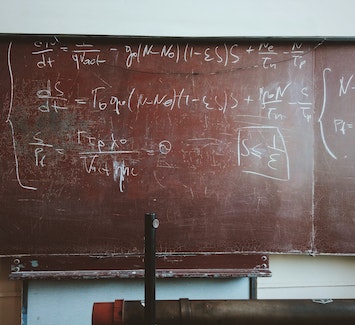 dN/dt = I/qVact - g₀(N-N₀)(1-εS)S + Ne/τn - N/τp
dS/dt = Γa g₀(N-N₀)(1-εS)S + βN/τn - S/τp
S/Pf = Γτp λ₀/Vact ηhc = S ≤ 1/ε
N-
Pf=